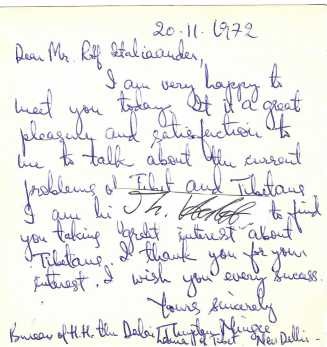 20-11-1972
Dear Mr. Rolf Italiaander,
I am very happy to
meet you today. It is a great
pleasure and satisfaction to
me to talk about the current
problems of Tibet and Tibetans
I am to find
you taking great interest about
Tibetans. I thank you for your
interest. I wish you every success.
Yours sincerely
Bureau of H.H. the Dalai Lama New Delhi -